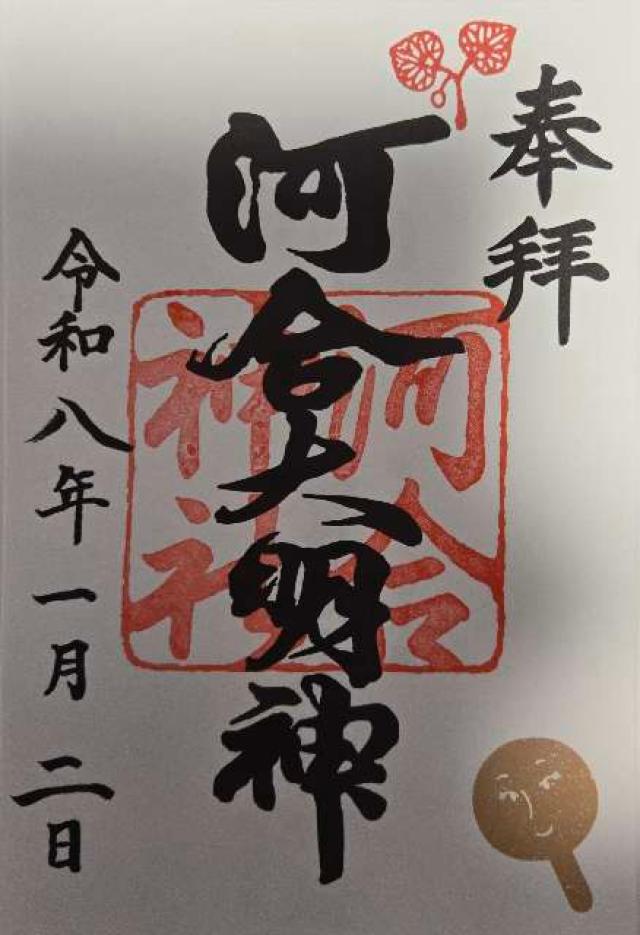 奉拝
河合大明神
河合
神社
令和八年一月二日